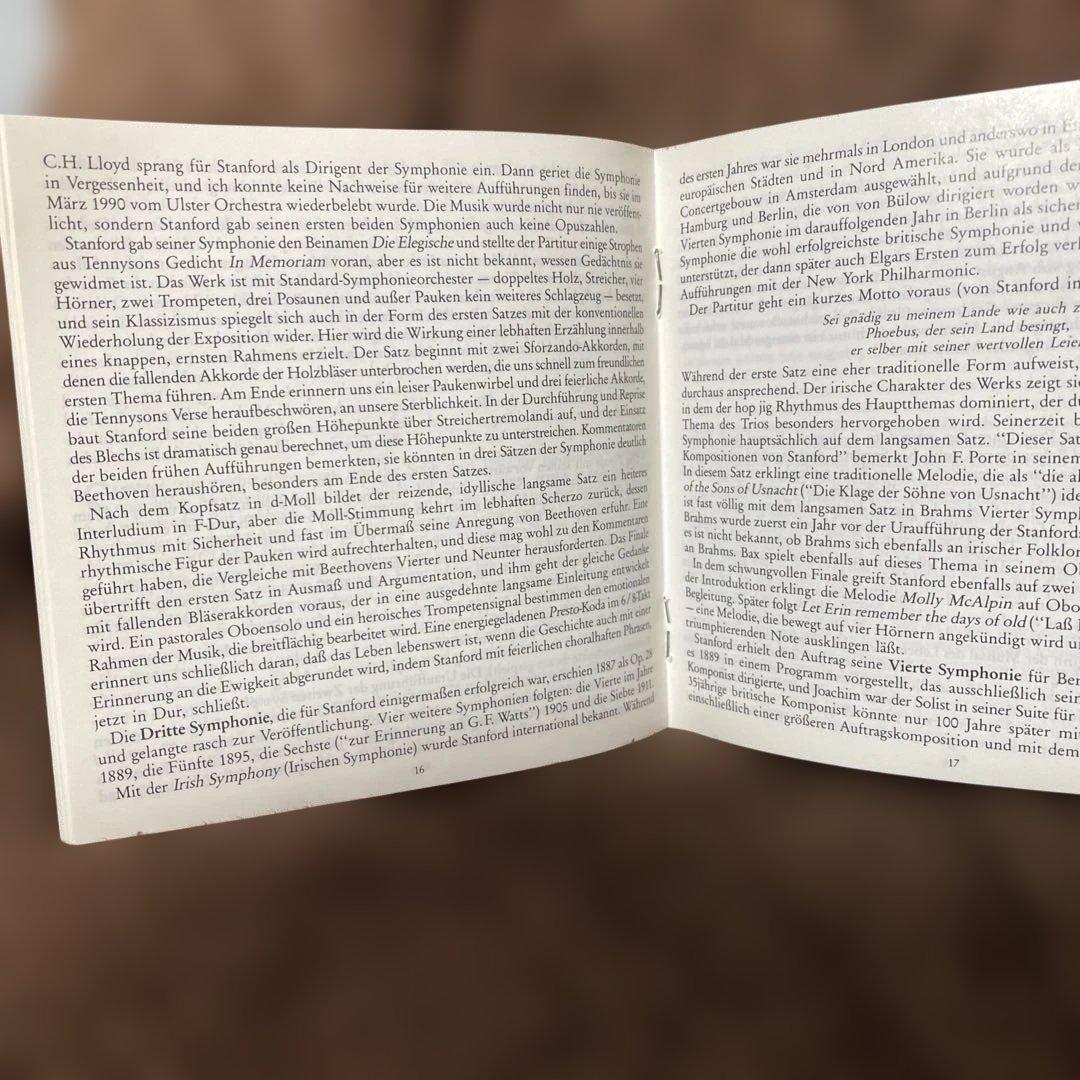 C.H. Lloyd sprang für Stanford als Dirigent der Symphonie ein. Dann geriet die Symphonie
in Vergessenheit, und ich konnte keine Nachweise für weitere Aufführungen finden, bis sie im
März 1990 vom Ulster Orchestra wiederbelebt wurde. Die Musik wurde nicht nur nie veröffent-
licht, sondern Stanford gab seinen ersten beiden Symphonien auch keine Opuszahlen.
Stanford gab seiner Symphonie den Beinamen Die Elegische und stellte der Partitur einige Strophen
aus Tennysons Gedicht In Memoriam voran, aber es ist nicht bekannt, wessen Gedächtnis sie
gewidmet ist. Das Werk ist mit Standard-Symphonieorchester — doppeltes Holz, Streicher, vier
Hörner, zwei Trompeten, drei Posaunen und außer Pauken kein weiteres Schlagzeug — besetzt,
und sein Klassizismus spiegelt sich auch in der Form des ersten Satzes mit der konventionellen
Wiederholung der Exposition wider. Hier wird die Wirkung einer lebhaften Erzählung innerhalb
eines knappen, ernsten Rahmens erzielt. Der Satz beginnt mit zwei Sforzando-Akkorden, mit
denen die fallenden Akkorde der Holzbläser unterbrochen werden, die uns schnell zum freundlichen
ersten Thema führen. Am Ende erinnern uns ein leiser Paukenwirbel und drei feierliche Akkorde,
die Tennysons Verse heraufbeschwören, an unsere Sterblichkeit. In der Durchführung und Reprise
baut Stanford seine beiden großen Höhepunkte über Streichertremolandi auf, und der Einsatz
des Blechs ist dramatisch genau berechnet, um diese Höhepunkte zu unterstreichen. Kommentatoren
der beiden frühen Aufführungen bemerkten, sie könnten in drei Sätzen der Symphonie deutlich
Beethoven heraushören, besonders am Ende des ersten Satzes.
Nach dem Kopfsatz in d-Moll bildet der reizende, idyllische langsame Satz ein heiteres
Interludium in F-Dur, aber die Moll-Stimmung kehrt im lebhaften Scherzo zurück, dessen
Rhythmus mit Sicherheit und fast im Übermaß seine Anregung von Beethoven erfuhr. Eine
rhythmische Figur der Pauken wird aufrechterhalten, und diese mag wohl zu den Kommentaren
geführt haben, die Vergleiche mit Beethovens Vierter und Neunter herausforderten. Das Finale
übertrifft den ersten Satz in Ausmaß und Argumentation, und ihm geht der gleiche Gedanke
mit fallenden Bläserakkorden voraus, der in eine ausgedehnte langsame Einleitung entwickelt
wird. Ein pastorales Oboensolo und ein heroisches Trompetensignal bestimmen den emotionalen
Rahmen der Musik, die breitflächig bearbeitet wird. Eine energiegeladenen Presto-Koda im 6/8-Takt
erinnert uns schließlich daran, daß das Leben lebenswert ist, wenn die Geschichte auch mit einer
Erinnerung an die Ewigkeit abgerundet wird, indem Stanford mit feierlichen choralhaften Phrasen,
jetzt in Dur, schließt.
Die Dritte Symphonie, die für Stanford einigermaßen erfolgreich war, erschien 1887 als Op. 28
und gelangte rasch zur Veröffentlichung. Vier weitere Symphonien folgten: die Vierte im Jahre
1889, die Fünfte 1895, die Sechste (“zur Erinnerung an G.F. Watts”) 1905 und die Siebte 1911.
Mit der Irish Symphony (Irischen Symphonie) wurde Stanford international bekannt. Während
16
des ersten Jahres war sie mehrmals in London und anderswo in
europäischen Städten und in Nord Amerika. Sie wurde als
Concertgebouw in Amsterdam ausgewählt, und aufgrund
Hamburg und Berlin, die von von Bülow dirigiert worden
Vierten Symphonie im darauffolgenden Jahr in Berlin als
Symphonie die wohl erfolgreichste britische Symphonie und
unterstützt, der dann später auch Elgars Ersten zum Erfolg
Aufführungen mit der New York Philharmonic.
Der Partitur geht ein kurzes Motto voraus (von Stanford in
Sei gnädig zu meinem Lande wie auch
Phoebus, der sein Land besingt,
er selber mit seiner wertvollen
Während der erste Satz eine eher traditionelle Form aufweist,
durchaus ansprechend. Der irische Charakter des Werks zeigt
in dem der hop jig Rhythmus des Hauptthemas dominiert, der
Thema des Trios besonders hervorgehoben wird. Seinerzeit
Symphonie hauptsächlich auf dem langsamen Satz. “Dieser
Kompositionen von Stanford” bemerkt John F. Porte in seinem
In diesem Satz erklingt eine traditionelle Melodie, die als “die
of the Sons of Usnacht (“Die Klage der Söhne von Usnacht”)
ist fast völlig mit dem langsamen Satz in Brahms Vierter
Brahms wurde zuerst ein Jahr vor der Uraufführung der
es ist nicht bekannt, ob Brahms sich ebenfalls an irischer
an Brahms. Bax spielt ebenfalls auf dieses Thema in seinem
In dem schwungvollen Finale greift Stanford ebenfalls auf zwei
der Introduktion erklingt die Melodie Molly McAlpin auf
Begleitung. Später folgt Let Erin remember the days of old (“Laß
– eine Melodie, die bewegt auf vier Hörnern angekündigt wird
triumphierenden Note ausklingen läßt.
Stanford erhielt den Auftrag seine Vierte Symphonie für
es 1889 in einem Programm vorgestellt, das ausschließlich
Komponist dirigierte, und Joachim war der Solist in seiner Suite für
35jährige britische Komponist könnte nur 100 Jahre später
einschließlich einer größeren Auftragskomposition und mit dem
17